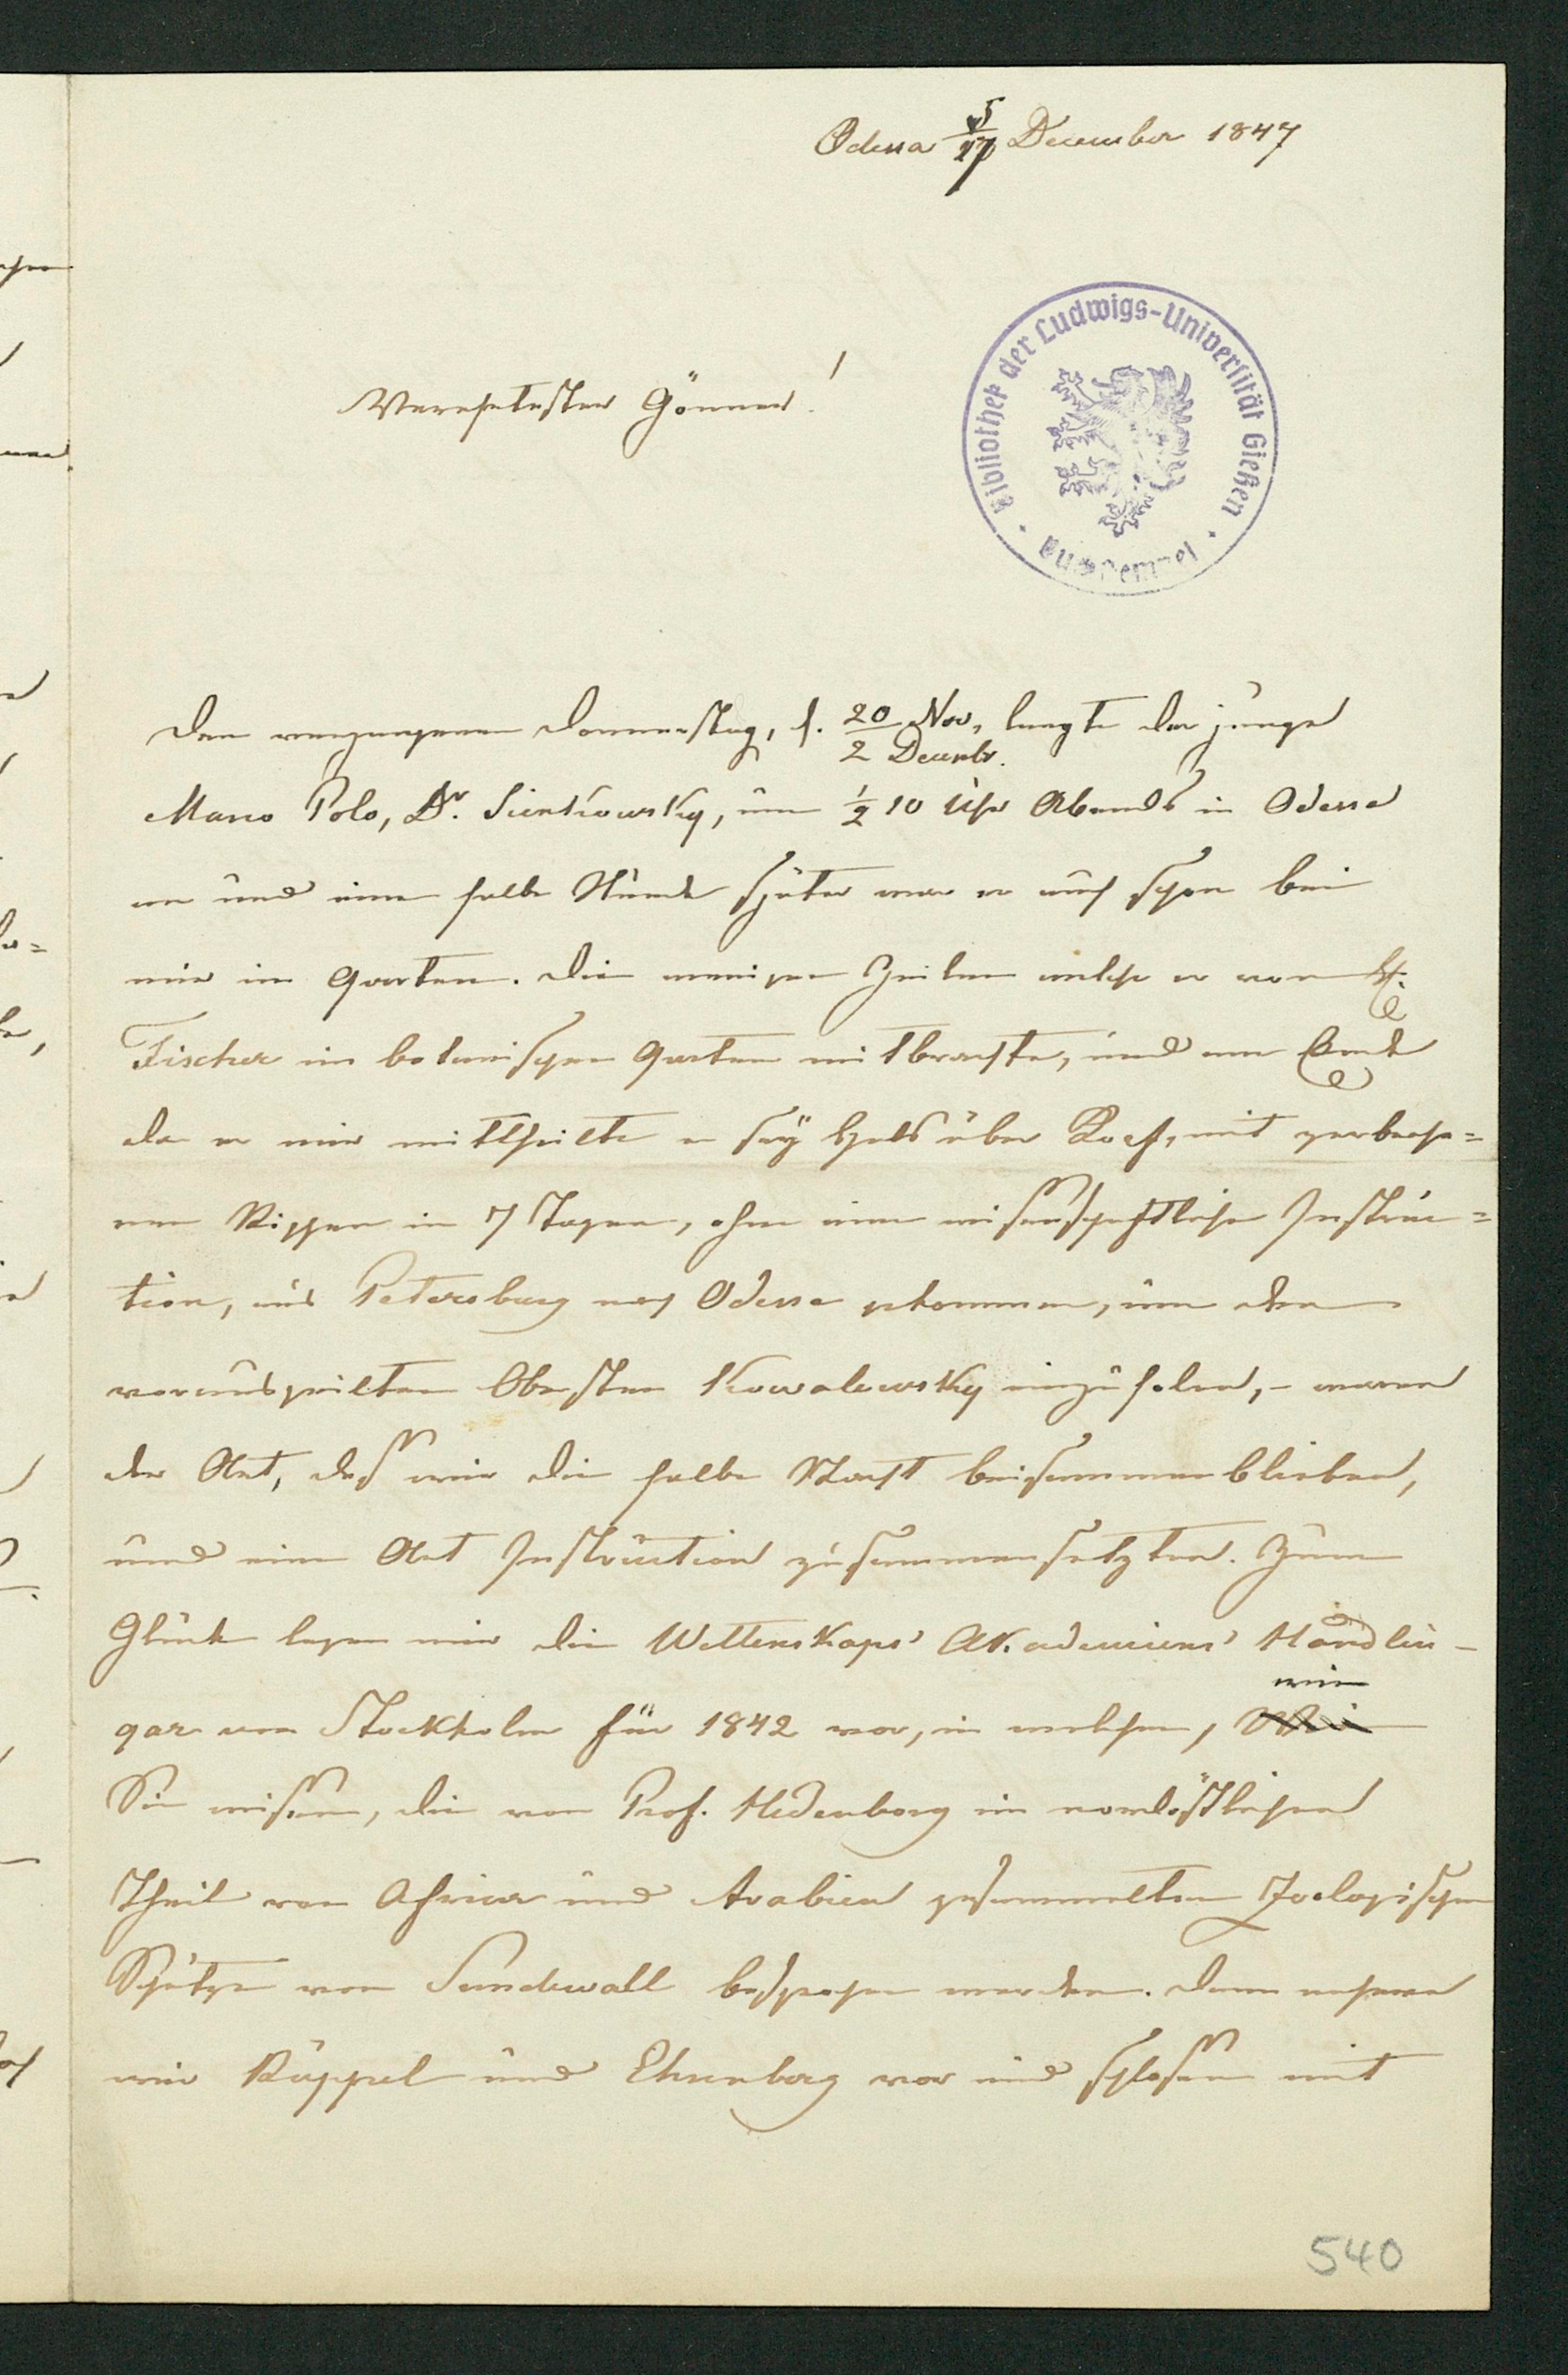 Odessa 5/17 December 1847
Verehrtester Gönner!
Bibliothek der Ludwigs-Universität Gießen
Buchstempel
Den vergangenen Donnerstag, d. 20 Nov. / 2 Decembr. langte der junge
Marco Polo, Dr. Cienkowsky, um ½ 10 Uhr Abends in Odessa
an und eine halbe Stunde später war er auch schon bei
mir im Garten. Die wenigen Zeilen welche er von H.
Fischer im botanischen Garten mitbrachte, und am Ende
da er mir mittheilte er sey Hals über Kopf, mit zerbroche=
nen Rippen in 7 Tagen, ohne eine wissenschaftliche Instruc=
tion, aus Petersburg nach Odessa gekommen, um den
vorausgeeilten Obersten Kowalewsky einzuholen, - waren
der Art, daß wir die halbe Nacht beisammen blieben,
und eine Art Instruction zusammensetzten. Zum
Glück lagen mir die Wettenskaps' Akademiens' Handlin-
gar von Stockholm für 1842 vor, in welchen, wie
Sie wissen, die von Prof. Hedenborg im nordöstlichen
Theil von Africa und Arabien gesammelten Zoologischen
Schätze von Sundewall besprochen werden. Dann nahmen
wir Rüppel und Ehrenberg vor und schlossen mit
540